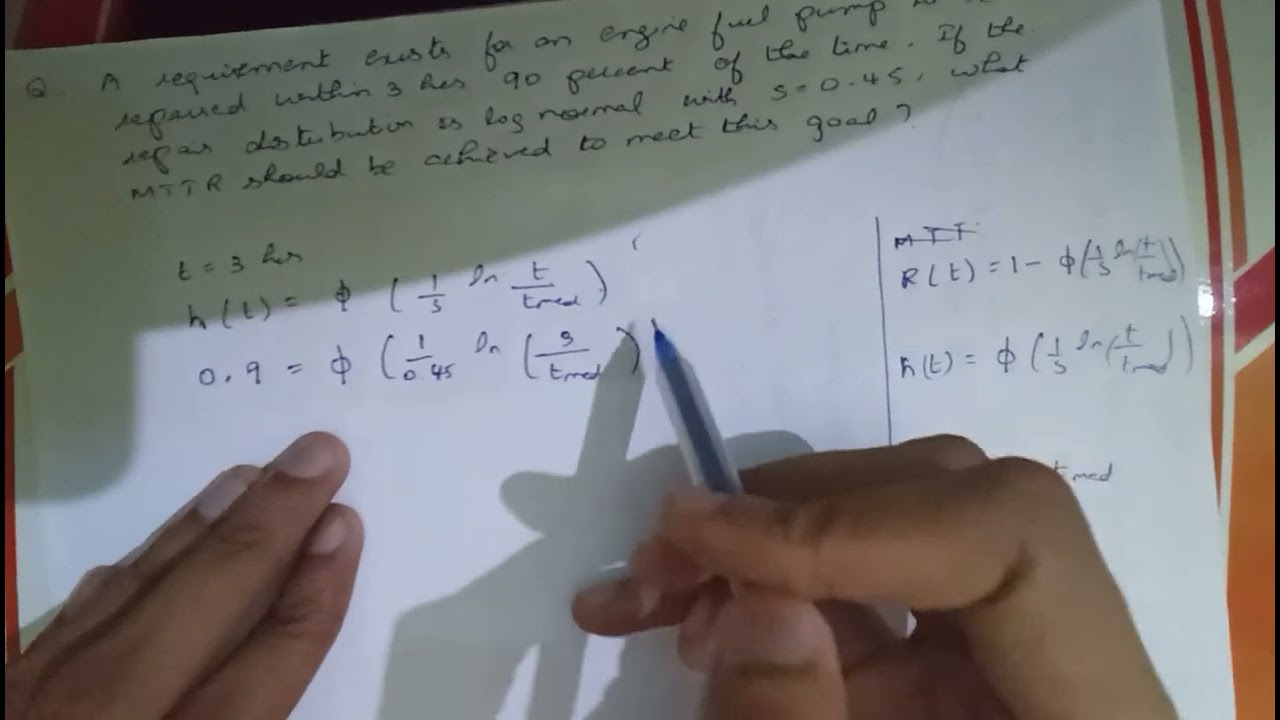 Q A requirement exists for an engine fuel pump
repaired within 3 hrs 90 percent of the time. If the
repair distribution is log normal with s = 0.45, what
MTTR should be achieved to meet this goal?
t = 3 hrs
h(t) = ϕ ( 1/s ln t/tmed )
0.9 = ϕ ( 1/0.45 ln ( 3/tmed )
MTT
R(t) = 1 - ϕ( 1/s ln( t/tmed ))
h(t) = ϕ ( 1/s ln( t/tmed ))
tmed